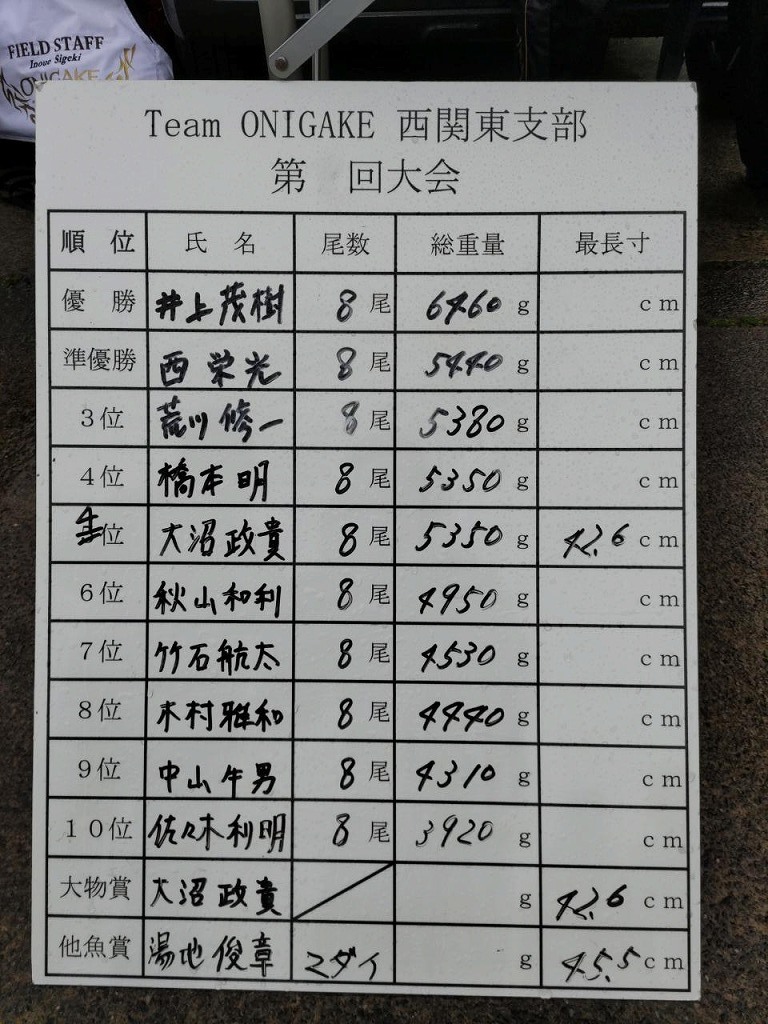 FIELD STAFF
Inoue Sigeki
ONIGAKE
Team ONIGAKE 西関東支部
第 回大会
順 位 氏 名 尾数 総重量 最長寸
優 勝 井上茂樹 8 尾 6460 g cm
準優勝 西 栄光 8 尾 5440 g cm
3位 荒川修一 8 尾 5380 g cm
4位 橋本明 8 尾 5350 g cm
4位 大沼政貴 8 尾 5350 g 42.6 cm
6位 秋山和利 8 尾 4950 g cm
7位 竹石航太 8 尾 4530 g cm
8位 木村雅和 8 尾 4440 g cm
9位 中山午男 8 尾 4310 g cm
10位 佐々木利明 8 尾 3920 g cm
大物賞 大沼政貴 g 42.6 cm
他魚賞 湯地俊章 マダイ g 45.5 cm